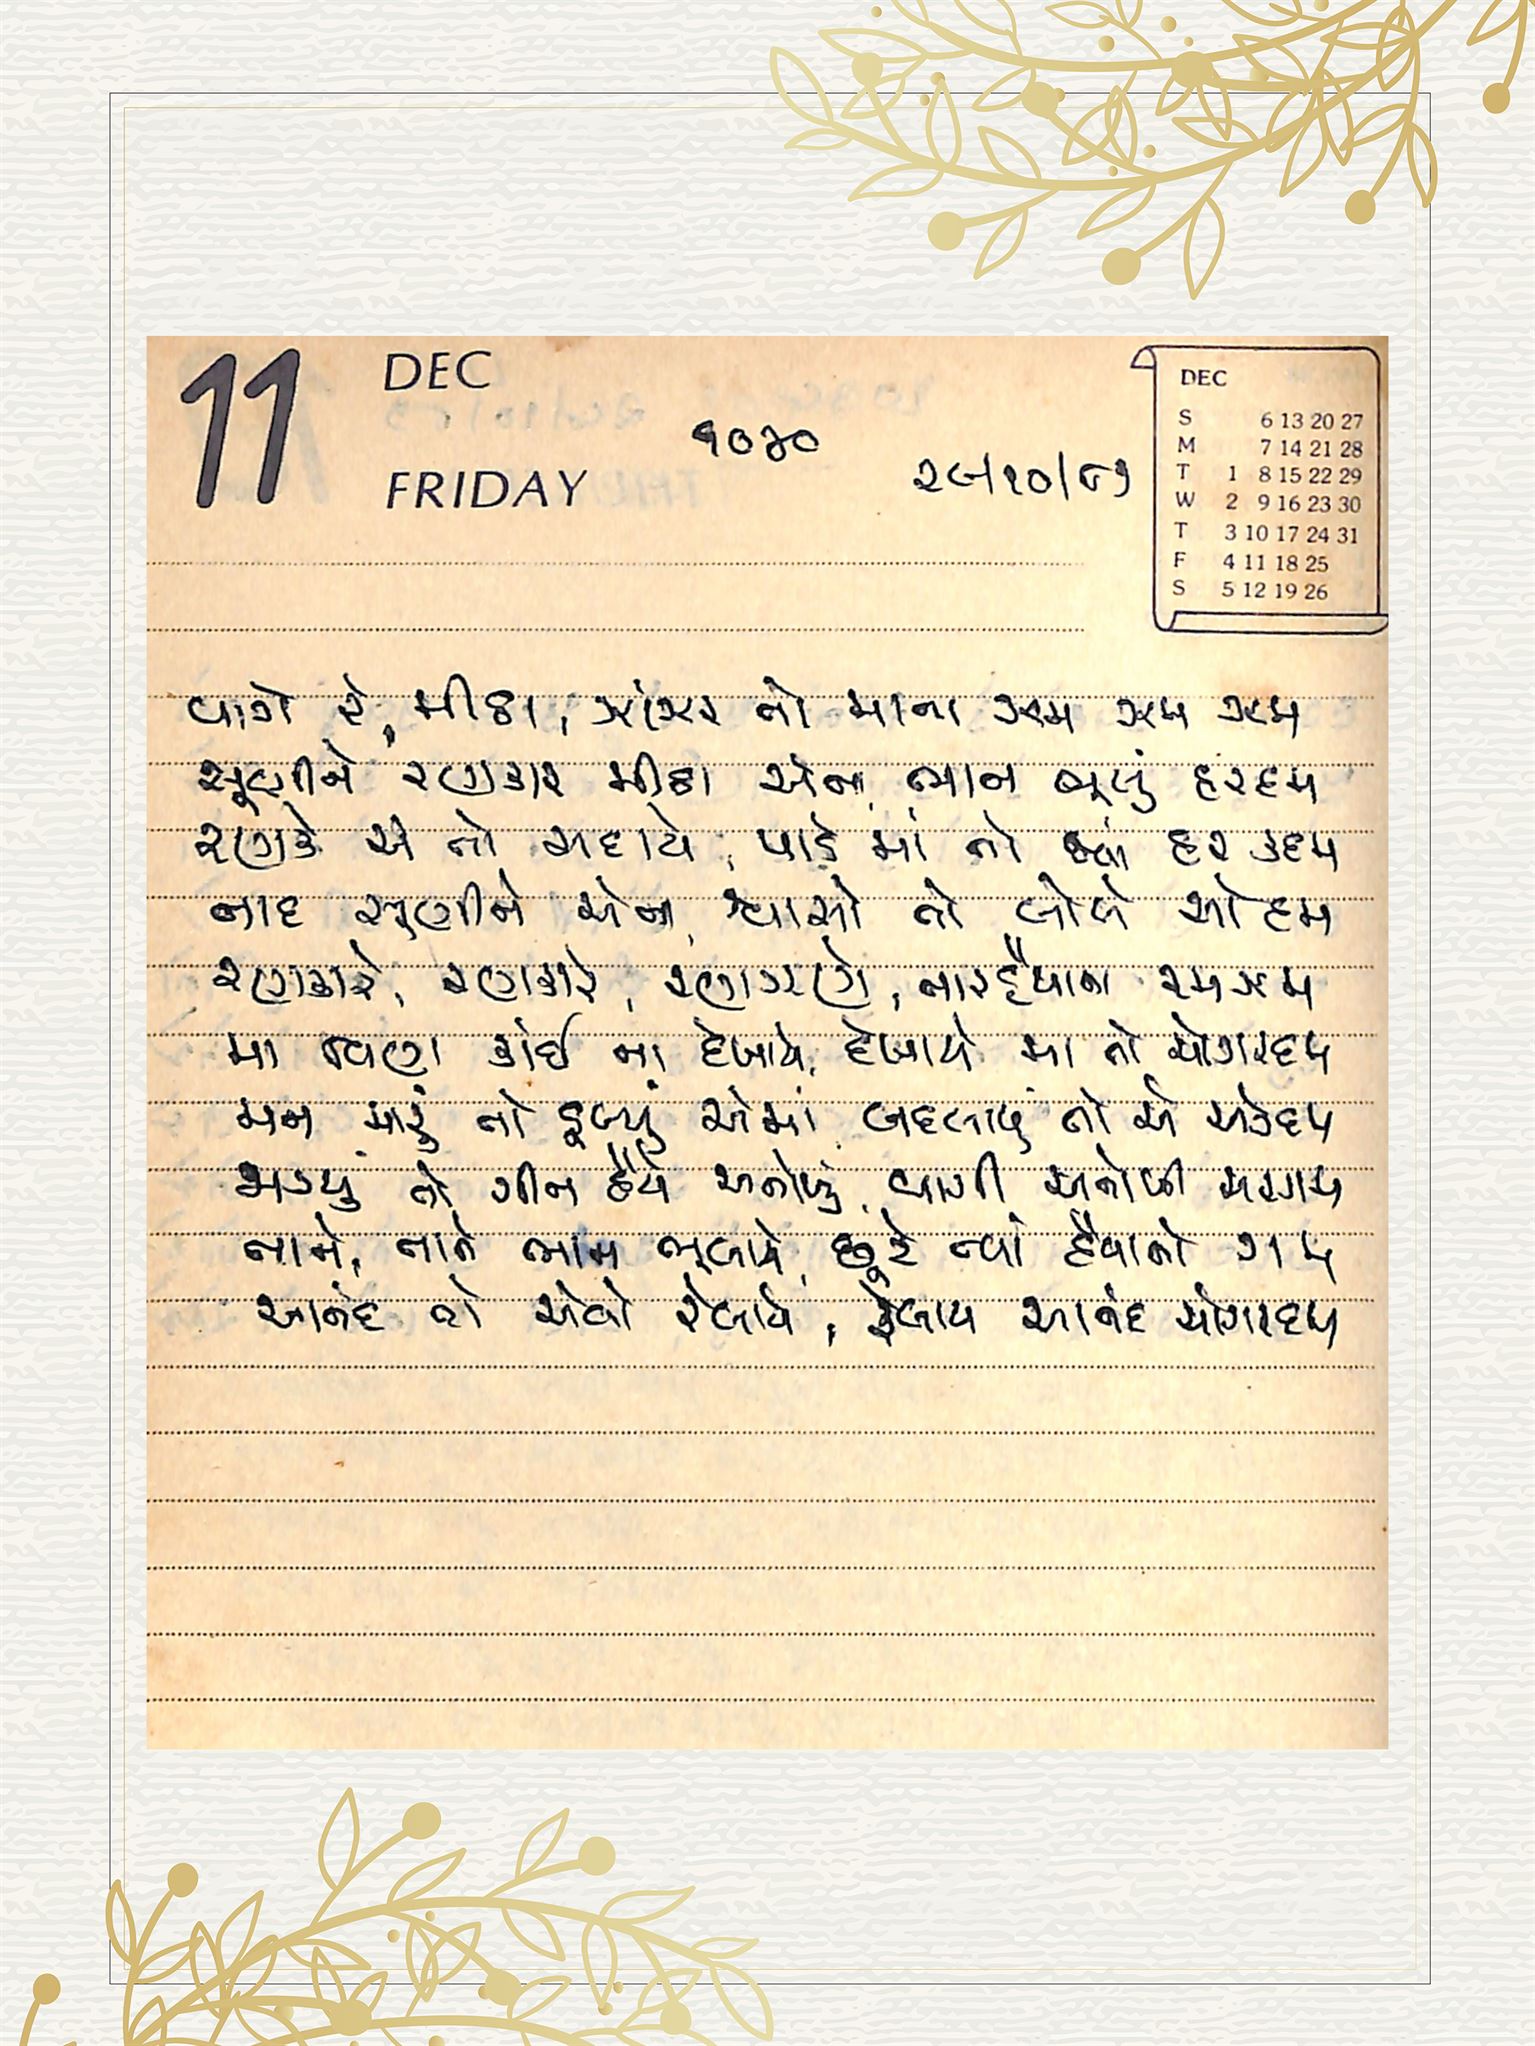 11
DEC
FRIDAY
૧૦૪૦
૨૯/૧૦/૮૭
DEC
S 6 13 20 27
M 7 14 21 28
T 1 8 15 22 29
W 2 9 16 23 30
T 3 10 17 24 31
F 4 11 18 25
S 5 12 19 26
વાગે રે, મીઠા, ઝાંઝર તો માના ઝમ ઝમ ઝમ
સૂણીને રણકાર મીઠા એના, ભાન ભૂલું હરદમ
રણકે એ તો સદાયે, પાડે માં તો જ્યાં હર કદમ
નાદ સુણીને એના, શ્વાસો તો બોલે ઓહમ
રણકારે, રણકારે, રણઝણે, તારહૈયાના રમઝમ
મા વિણ કોઈ ના દેખાયે, દેખાયે મા તો ચોગરદમ
મન મારું તો ડૂબ્યું એમાં, બદલાયું તો એ એકદમ
મંડયું તો ગીત હૈયે અનોખું, વાગી અનોખી સરગમ
તાને, તાને ભાન ભૂલાયે, છૂટે ત્યાં હૈયાનો ગમ
આનંદ તો એવો રેલાયે, ફેલાય આનંદ ચોગરદમ